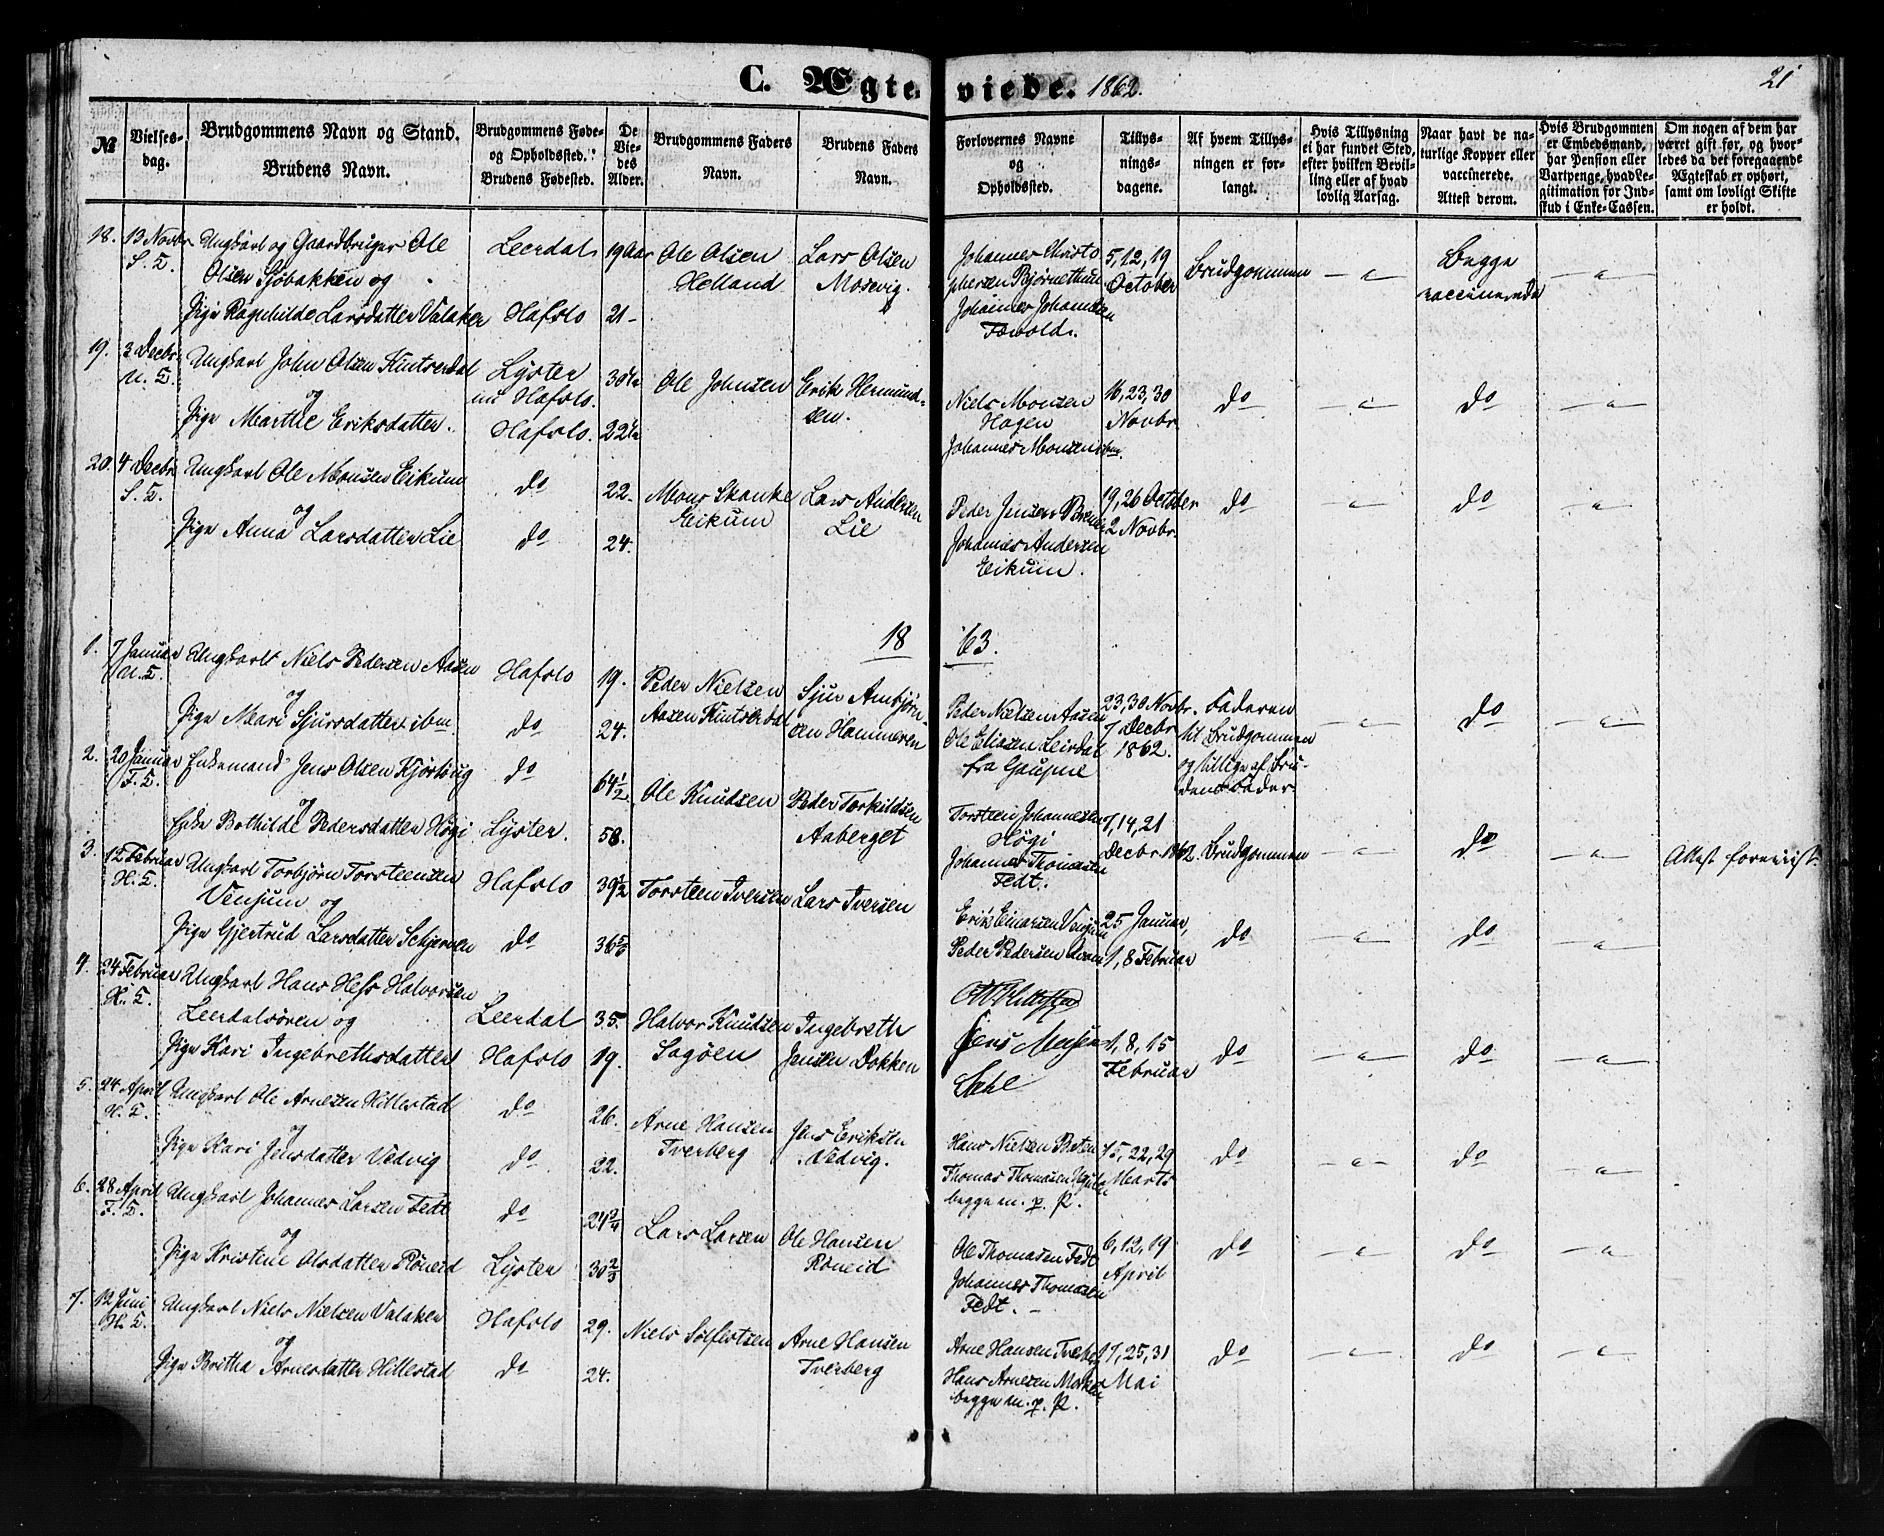 C. Ægteviede. 1862.
21
№
Vielses-
dag.
Brudgommens Navn og Stand.
Brudens Navn.
Brudgommens Føde-
og Opholdssted.
Brudens Fødested.
De
Vie-
des
Alder.
Brudgommens Faders
Navn.
Brudens Faders
Navn.
Forlovernes Navne
og
Opholdssted.
Tillys-
nings-
dagene.
Af hvem Tillys-
ningen er for-
langt.
Hvis Tillysning
ei har fundet Sted,
efter hvilken Bevil-
ling eller af hvad
lovlig Aarsag.
Naar havt de na-
turlige Kopper eller
vaccinerede.
Attest derom.
Hvis Brudgommen
er Embedsmand,
har Pension eller
Vartpenge, hvad Le-
gitimation for Ind-
skud i Enke-Cassen.
Om nogen af dem har
været gift før, og hvor-
ledes da det foregaaende
Ægteskab er ophørt,
samt om lovligt Skifte
er holdt.
18. 13 Novbr
S. T.
Ungkarl og Gaardbruger Ole
Olsen Sjøbakken og
Pige Ragnhilde Larsdatter Valaker
Leerdal
Hafslo
19 Aar
21 -
Ole Olsen
Helland
Lars Olsen
Mosevig.
Johannes Christo
phersen Bjørnethun
Johannes Johannesen
5, 12, 19
October
Brudgommen
Begge
vaccinerede
19. 3 Decbr.
U. T.
Ungkarl John Olsen Kintserdal
og
Pige Marthe Eriksdatter.
Lyster
nu Hafslo.
Hafslo.
Ole Johnsen
Erik Hermund-
sen.
Niels Monsen
Hagen
Johannes Monsen ibm.
16, 23, 30
Novbr
do
do
20. 4 Decbr
S. T.
Ungkarl Ole Monsen Eikum
og
Pige Anna Larsdatter Lie
do
do
22.
24.
Mons Skanke
Eikum
Lars Andersen
Lie
Peder Jensen
Johannes Andersen
Eikum.
19, 26 October
2 Novbr.
do
do
1863.
1. 7 Januar
U. T.
Ungkarl Niels Pedersen Aasen
og
Pige Mari Sjursdatter ibm.
Hafslo
do
19.
24.
Peder Nielsen
Aasen Kintserdal
Sjur Ambjørn-
sen Hammeren
Peder Nielsen Aasen
Ole Eliasen Leirdal
fra Gaupne
23, 30 Novbr.
7 Decbr
1862.
Faderen
til Brudgommen
og tillige af Bru-
dens Fader
do
2. 20 Januar
F. T.
Enkemand Jens Olsen Kjørlaug
og
Enke Bothilde Pedersdatter Høgi
do
Lyster.
64 1/2
58.
Ole Knudsen
Peder Torkildsen
Aaberget
Torsteen Johannesen
Høgi
Johannes Thomasen
Fedt.
7, 14, 21
Decbr 1862.
Brudgommen
do
Attest foreviist.
3. 12 Februar
H. T.
Ungkarl Torbjørn Torsteensen
Venjum og
Pige Gjertrud Larsdatter Schjerven
Hafslo
do
39 1/2
Torsteen Iversen
Lars Iversen
Erik Einarsen Venjum
Peder Pedersen
25 Januar,
1, 8 Februar
do
do
4. 24 Februar
H. T.
Ungkarl Hans Hess Halvorsen
Leerdalsøren og
Pige Kari Ingebrethsdatter
Leerdal
Hafslo
35.
19.
Halvor Knudsen
Sagøen
Ingebreth
Jensen Dokken
Jens
1, 8, 15
Februar
do
do
5. 24 April
H. T.
Ungkarl Ole Arnesen Hillestad
og
Pige Kari Jensdatter Vedvig
do
do
26.
22.
Arne Hansen
Tverberg
Jens Eriksen
Vedvig.
Hans Nielsen
Thomas Thomasen
begge m. p. P.
15, 22, 29
Marts
do
do
6. 28 April
F. T.
Ungkarl Johannes Larsen Fedt
og
Pige Kristine Olsdatter Røneid
do
Lyster
24 3/4
30 2/3
Lars Larsen
Ole Hansen
Røneid
Ole Thomasen Fedt
Johannes Thomasen
Fedt. -
6, 12, 19
April
do
do
7. 12 Juni
H. T.
Ungkarl Niels Nielsen Valaker
og
Pige Britha Arnesdatter Hillestad
Hafslo
do
29.
24.
Niels Solfestsen
Arne Hansen
Tverberg
Arne Hansen Tverberg
Hans Arnesen
begge m. p. P.
17, 25, 31
Mai
do
do